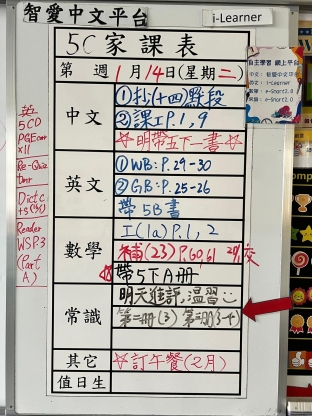 智愛中文平台
i-Learner
5C 家課表
第 週 1月14日(星期二)
中文
①抄(十四)野段
②課I P.1,9
☆明帶五下一書☆
英文
①WB: P.29-30
②GB: P.25-26
帶 5B書
數學
I(1a) P.1, 2
補(23) P.60,61 29/1交
帶5下A冊
常識
明天進評,溫習
第二冊(3) 第三冊(3-4)
其它
☆訂午餐(2月)
值日生
英
5CD
PGExam
x11
Re-Quiz
Dict c
Reader
WSP.3
(Part
A)
自主學習 網上平台
中文: 智愛中文平台
英文: i-Learner